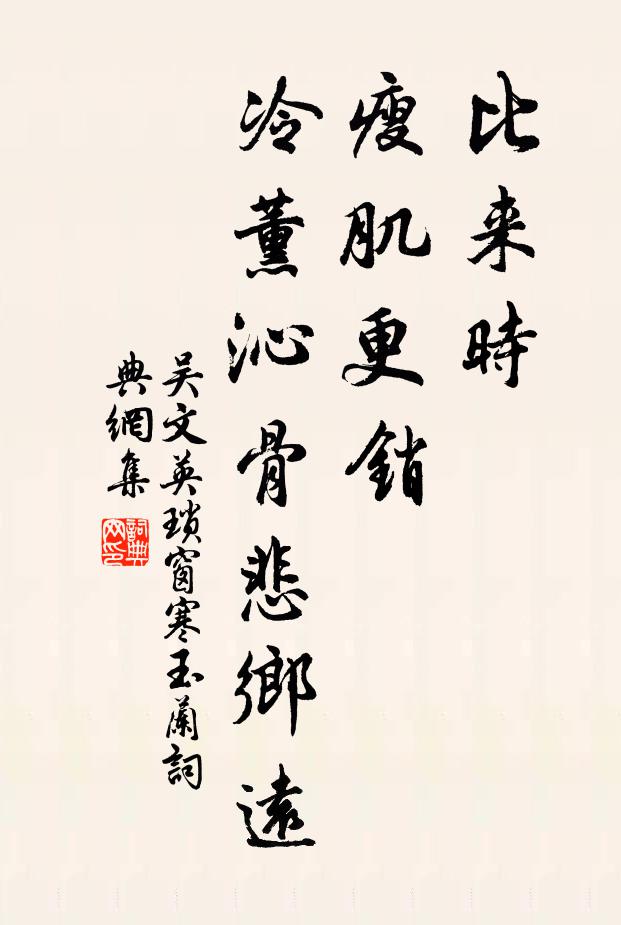 比来時
瘦肌更銷
冷薰沁骨悲鄉遠
吴文英瑣窗寒玉蘭詞
典網集
詞典網印